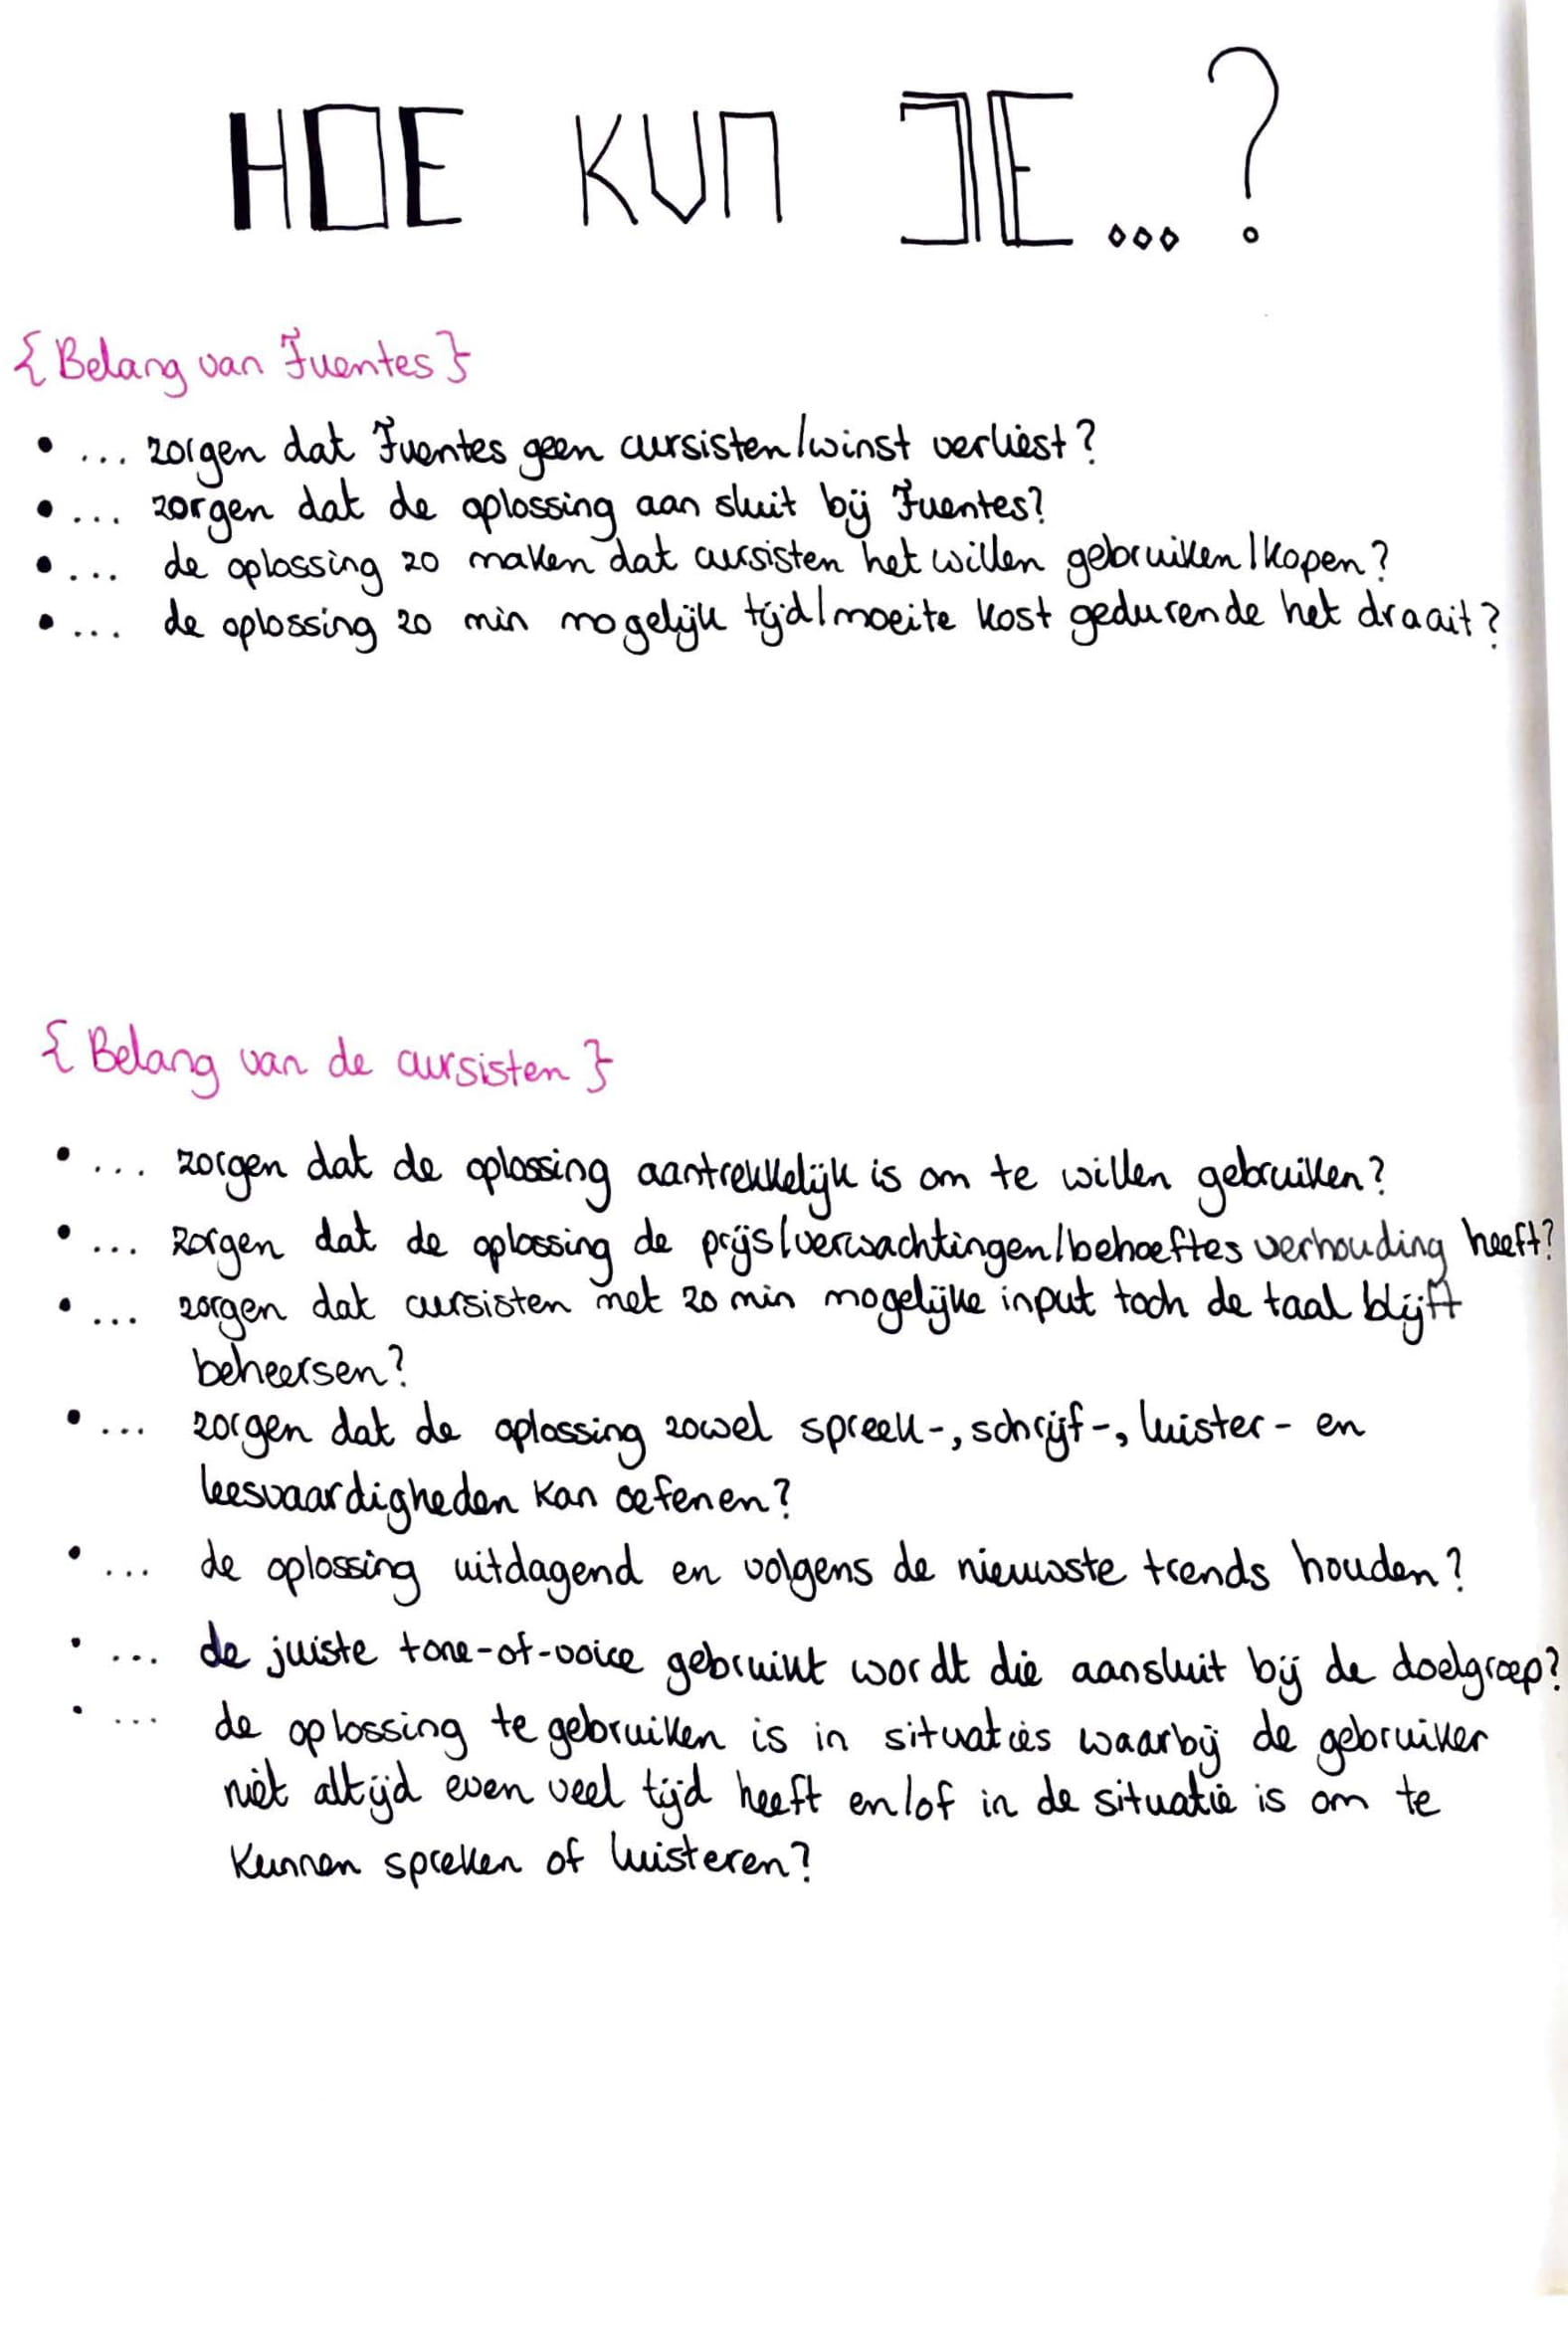 HOE KUN JE...?
{Belang van Fuentes}
• ... zorgen dat Fuentes geen cursisten/winst verliest?
• ... zorgen dat de oplossing aan sluit bij Fuentes?
• ... de oplossing zo maken dat cursisten het willen gebruiken/kopen?
• ... de oplossing zo min mogelijk tijd/moeite kost gedurende het draait?
{Belang van de cursisten}
• ... zorgen dat de oplossing aantrekkelijk is om te willen gebruiken?
• ... zorgen dat de oplossing de prijs/verwachtingen/behoeftes verhouding heeft?
• ... zorgen dat cursisten met zo min mogelijke input toch de taal blijft
beheersen?
• ... zorgen dat de oplossing zowel spreek-, schrijf-, luister- en
leesvaardigheden kan oefenen?
• ... de oplossing uitdagend en volgens de nieuwste trends houden?
• ... de juiste tone-of-voice gebruikt wordt die aansluit bij de doelgroep?
• ... de oplossing te gebruiken is in situaties waarbij de gebruiker
niet altijd even veel tijd heeft en/of in de situatie is om te
kunnen spreken of luisteren?